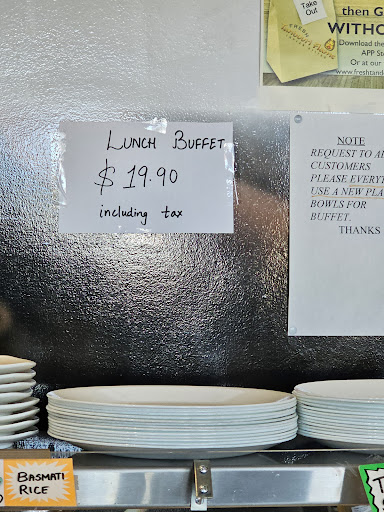 LUNCH BUFFET
$ 19.90
including tax
Take
Out
then G
WITHO
Download the
APP Sto
Or at our
www.freshtand
NOTE
REQUEST TO
CUSTOMERS
PLEASE EVERYT
USE A NEW PLA
BOWLS FOR
BUFFET.
THANKS
BASMATI
RICE